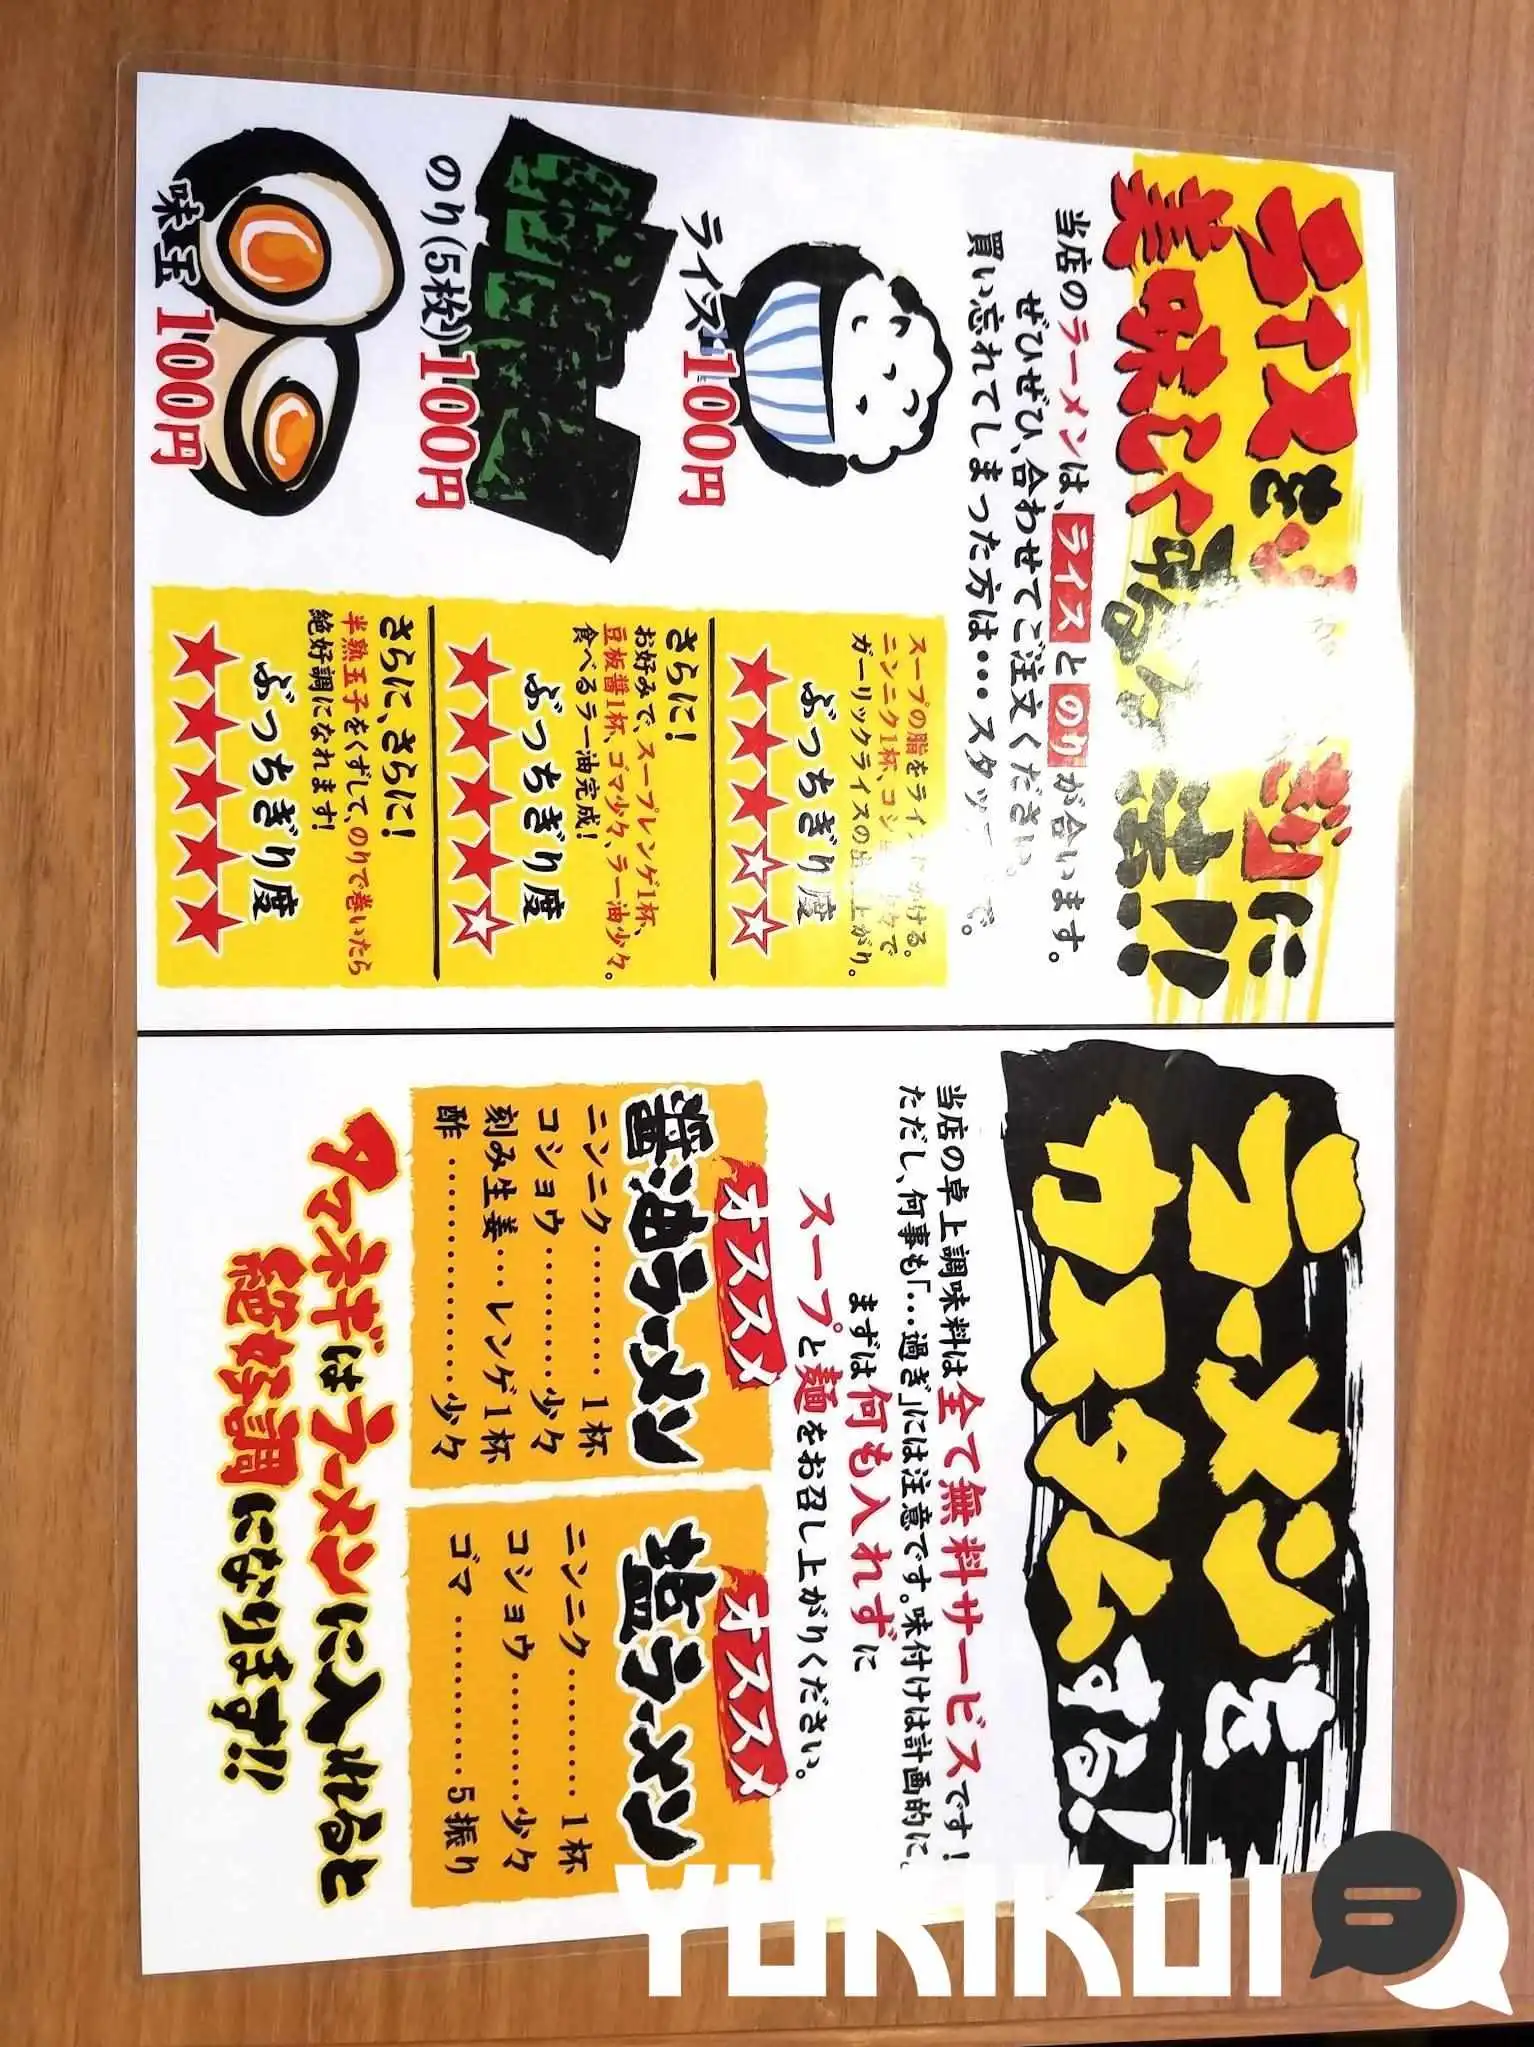 ライスを
美味しくする方法!!
当店のラーメンは、ライスとのりが合います。
ぜひぜひ、合わせてご注文ください。
買い忘れてしまった方は…スタッ
ライス100円
のり(5枚)100円
味玉100円
スープの脂をライ かける。
ニンニク1杯、コショ 々で
ガーリックライスの出 上がり。
ぶっちぎり度
★★★☆☆
さらに!
お好みで、スープレンゲ1杯、
豆板醤1杯、ゴマ少々、ラー油少々。
食べるラー油完成!
ぶっちぎり度
★★★★☆
さらに、さらに!
半熟玉子をくずして、のりで巻いたら
絶好調になれます!
ぶっちぎり度
★★★★★
ラーメンを
カスタムする!
当店の卓上調味料は全て無料サービスです!
ただし、何事も「…過ぎ」には注意です。味付けは計画的に。
まずは何も入れずに
スープと麺をお召し上がりください。
オススメ
醤油ラーメン
ニンニク………1杯
コショウ………少々
刻み生姜…レンゲ1杯
酢………………少々
オススメ
塩ラーメン
ニンニク………1杯
コショウ………少々
ゴマ……………5振り
タマネギはラーメンに入れると
絶好調になります!!
YORIKOI